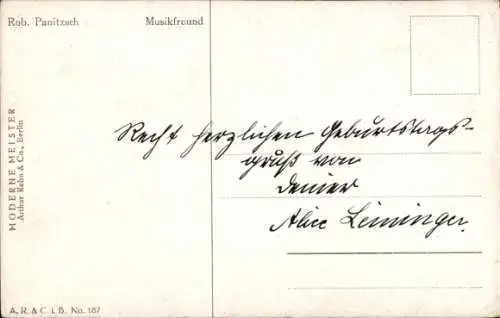 Rob. Panitzsch
Musikfreund
MODERNE MEISTER
Arthur Rehn & Co., Berlin
Recht herzlichen Geburtstags-
gruß von
deiner
Alice Leininger.
A. R. & C. i. B. No. 187